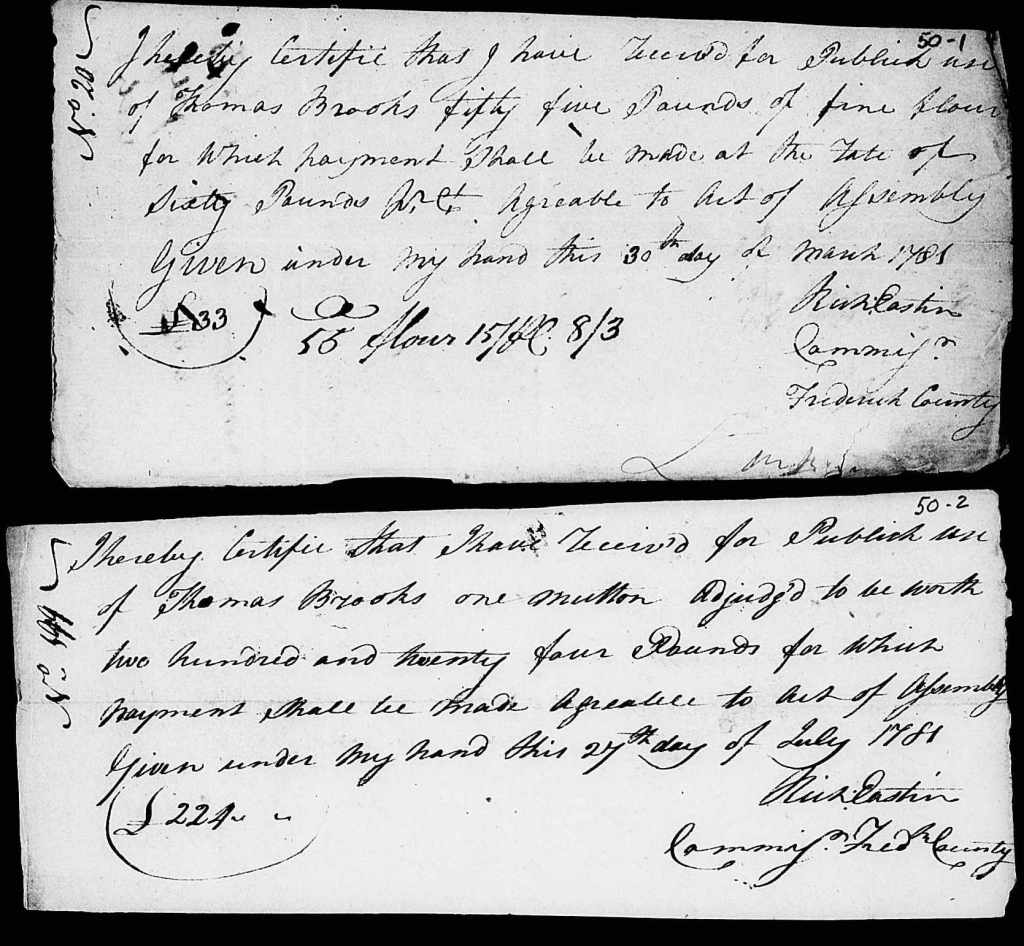 50-1
No. 20
I hereby Certifie that I have Receiv'd for Publick use
of Thomas Brooks fifty five Pounds of fine flour
for Which payment Shall be made at the rate of
Sixty Pounds Pr. Ct. Agreable to Act of Assembly
Given under my hand this 30th day of March 1781
£33
Rich Eastin
55 flour 15/ 8/3
Commissr
Frederick County
50-2
No. 444
I hereby Certifie that I have Receiv'd for Publick use
of Thomas Brooks one mutton Adjudg'd to be worth
two hundred and twenty four Pounds for Which
payment Shall be made Agreable to Act of Assembly
Given under my hand this 27th day of July 1781
£224
Rich Eastin
Commissr. Fredk County